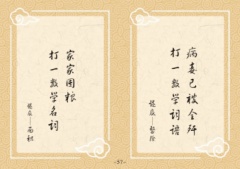 病毒已被全歼
打一数学词语
谜底——整除
打一数学名词
谜底——
-57-